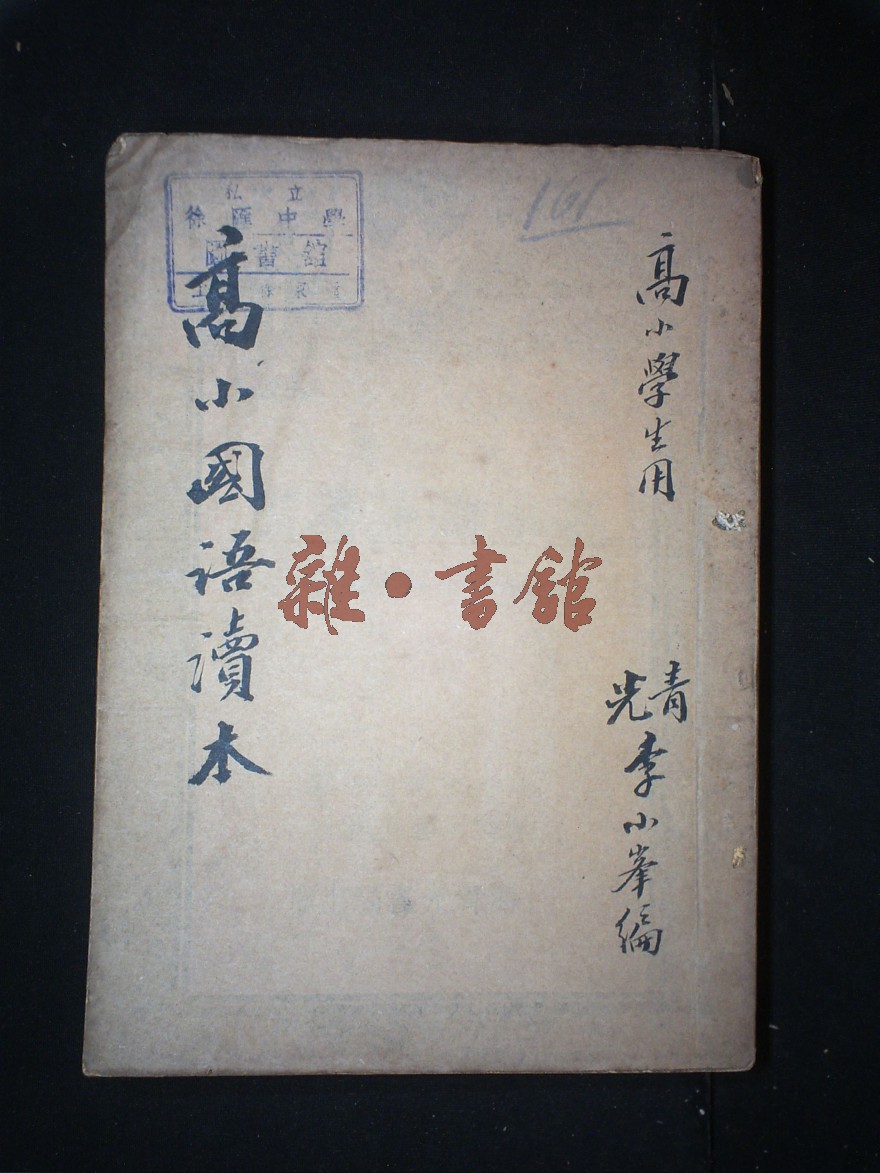 高小學生用
青光
李小峯編
161
高小國語讀本
私立
徐匯中學
圖書館
雜·書舘